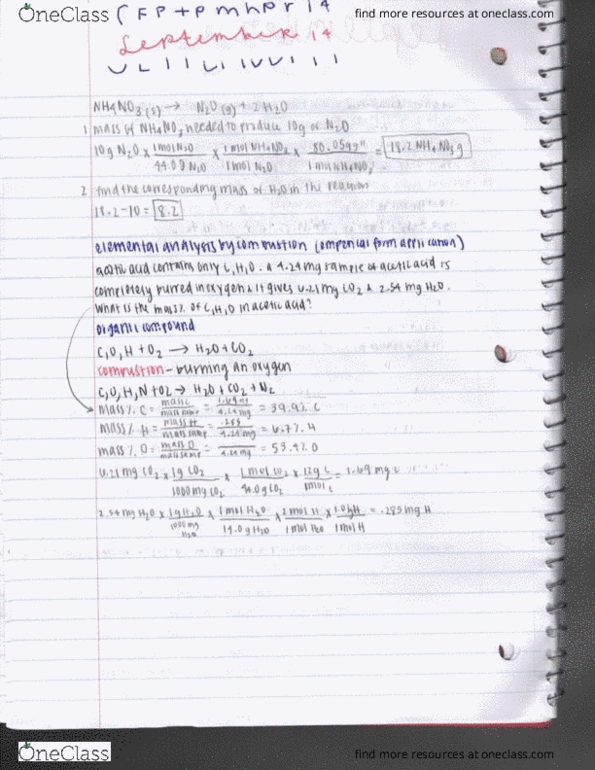 OneClass
find more resources at oneclass.com
September 14
NH4NO3(s) → N2O(g) + 2H2O
1 mass of NH4NO3 needed to produce 10g of N2O
10g N2O × 1mol N2O / 44.0g N2O × 1mol NH4NO3 / 1mol N2O × 80.0599 / 1mol NH4NO3 = 18.2 NH4NO3 g
2 find the corresponding mass of H2O in the reaction
18.2-10 = 8.2
elemental analysis by combustion (empencial form application)
acetic acid contains only C,H,O. A 4.24mg sample of acetic acid is
completely burred in oxygen & it gives 6.21mg CO2 & 2.54 mg H2O.
What is the mass% of C,H,O in acetic acid?
organic compound
C,O,H + O2 → H2O + CO2
combustion - burning an oxygen
C,O,H,N + O2 → H2O + CO2 + N2
mass% C = mass C / mass samp = 1.69mg / 4.24mg = 39.9% C
mass% H = mass H / mass samp = .285 / 4.24mg = 6.7% H
mass% O = mass O / mass samp = / 4.24mg = 53.4% O
6.21mg CO2 × 1g CO2 / 1000mg CO2 × 1mol CO2 / 44.0g CO2 × 12g C / 1mol C = 1.69 mg C
2.54mg H2O × 1g H2O / 1000mg H2O × 1mol H2O / 18.0g H2O × 2mol H / 1mol H2O × 1.0gH / 1mol H = .285mg H
OneClass
find more resources at oneclass.com